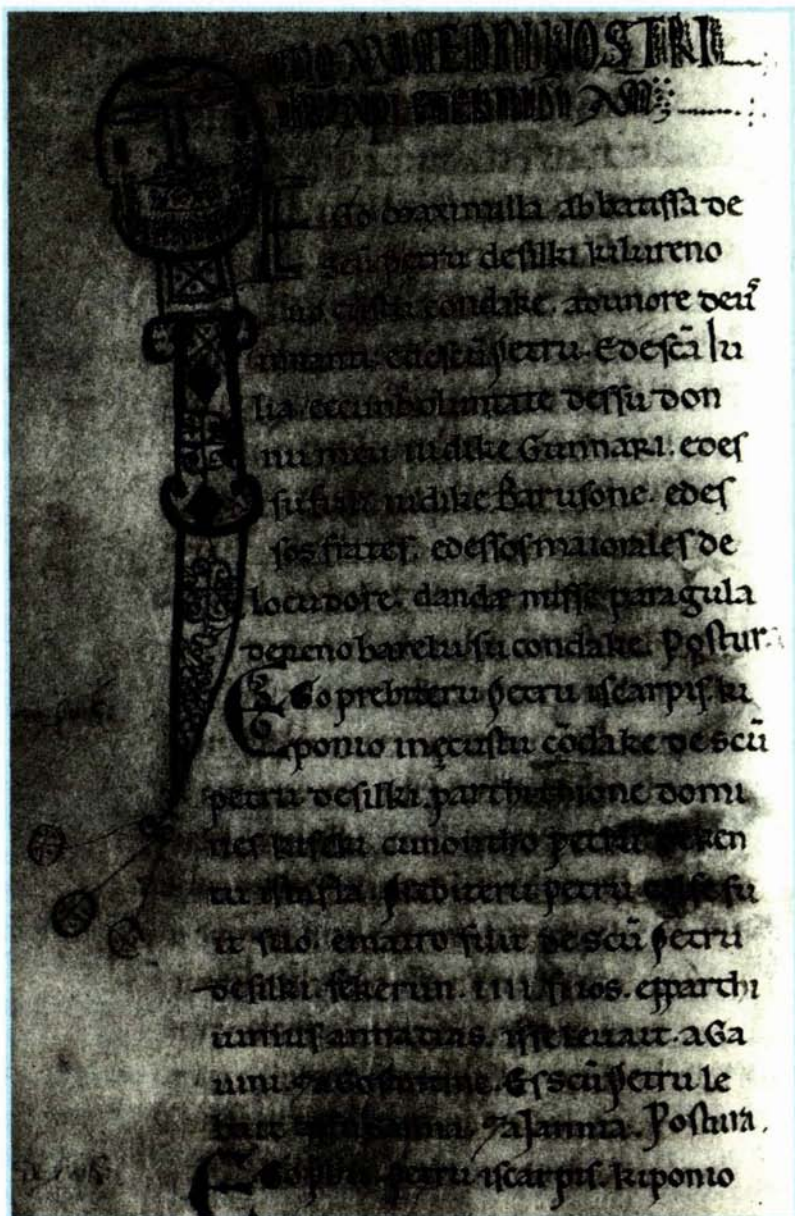 DNI NOSTRI
AM
EGo maximilla abbatissa de
scũ petru desilki kilureno
custu condake. adunore deũ
innanti. edescũ petru. Edescã lu
lia. eccunboluntate dessu don
nu meu iudike Gunnari. edes
su fiiu iudike Barusone. edes
sos frates. edessos maiorales de
locudore. dandæ misse paragula
derenobarelu su condake. Postur.
EGo prebiteru petru iscarpis. ki
ponio inçustu cõdake de scũ
petru desilki. parthithione domi
nes kifeki cunoitho
prebiteru petru
fiios. ematro fuit de scũ petru
desilki. fekerun. IIII. fiios. epparthi
iumus annatias. issu leuait. aGa
uini. 7aGostantine. Esscũ petru le
7aJannia. Postura.
EGo petru iscarpis. kiponio